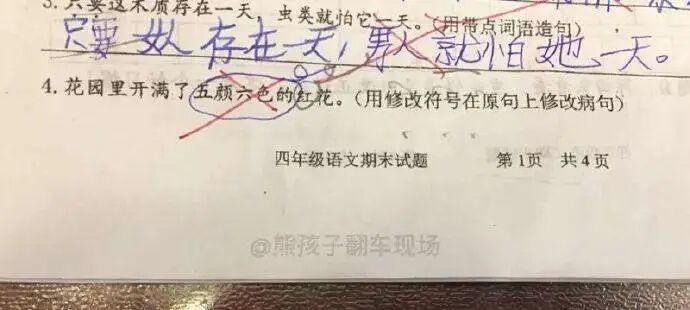 3.只要这木质存在一天，虫类就怕它一天。(用带点词语造句)
只要女人存在一天，男人就怕她一天。
4.花园里开满了五颜六色的红花。(用修改符号在原句上修改病句)
四年级语文期末试题 第1页 共4页
@熊孩子翻车现场